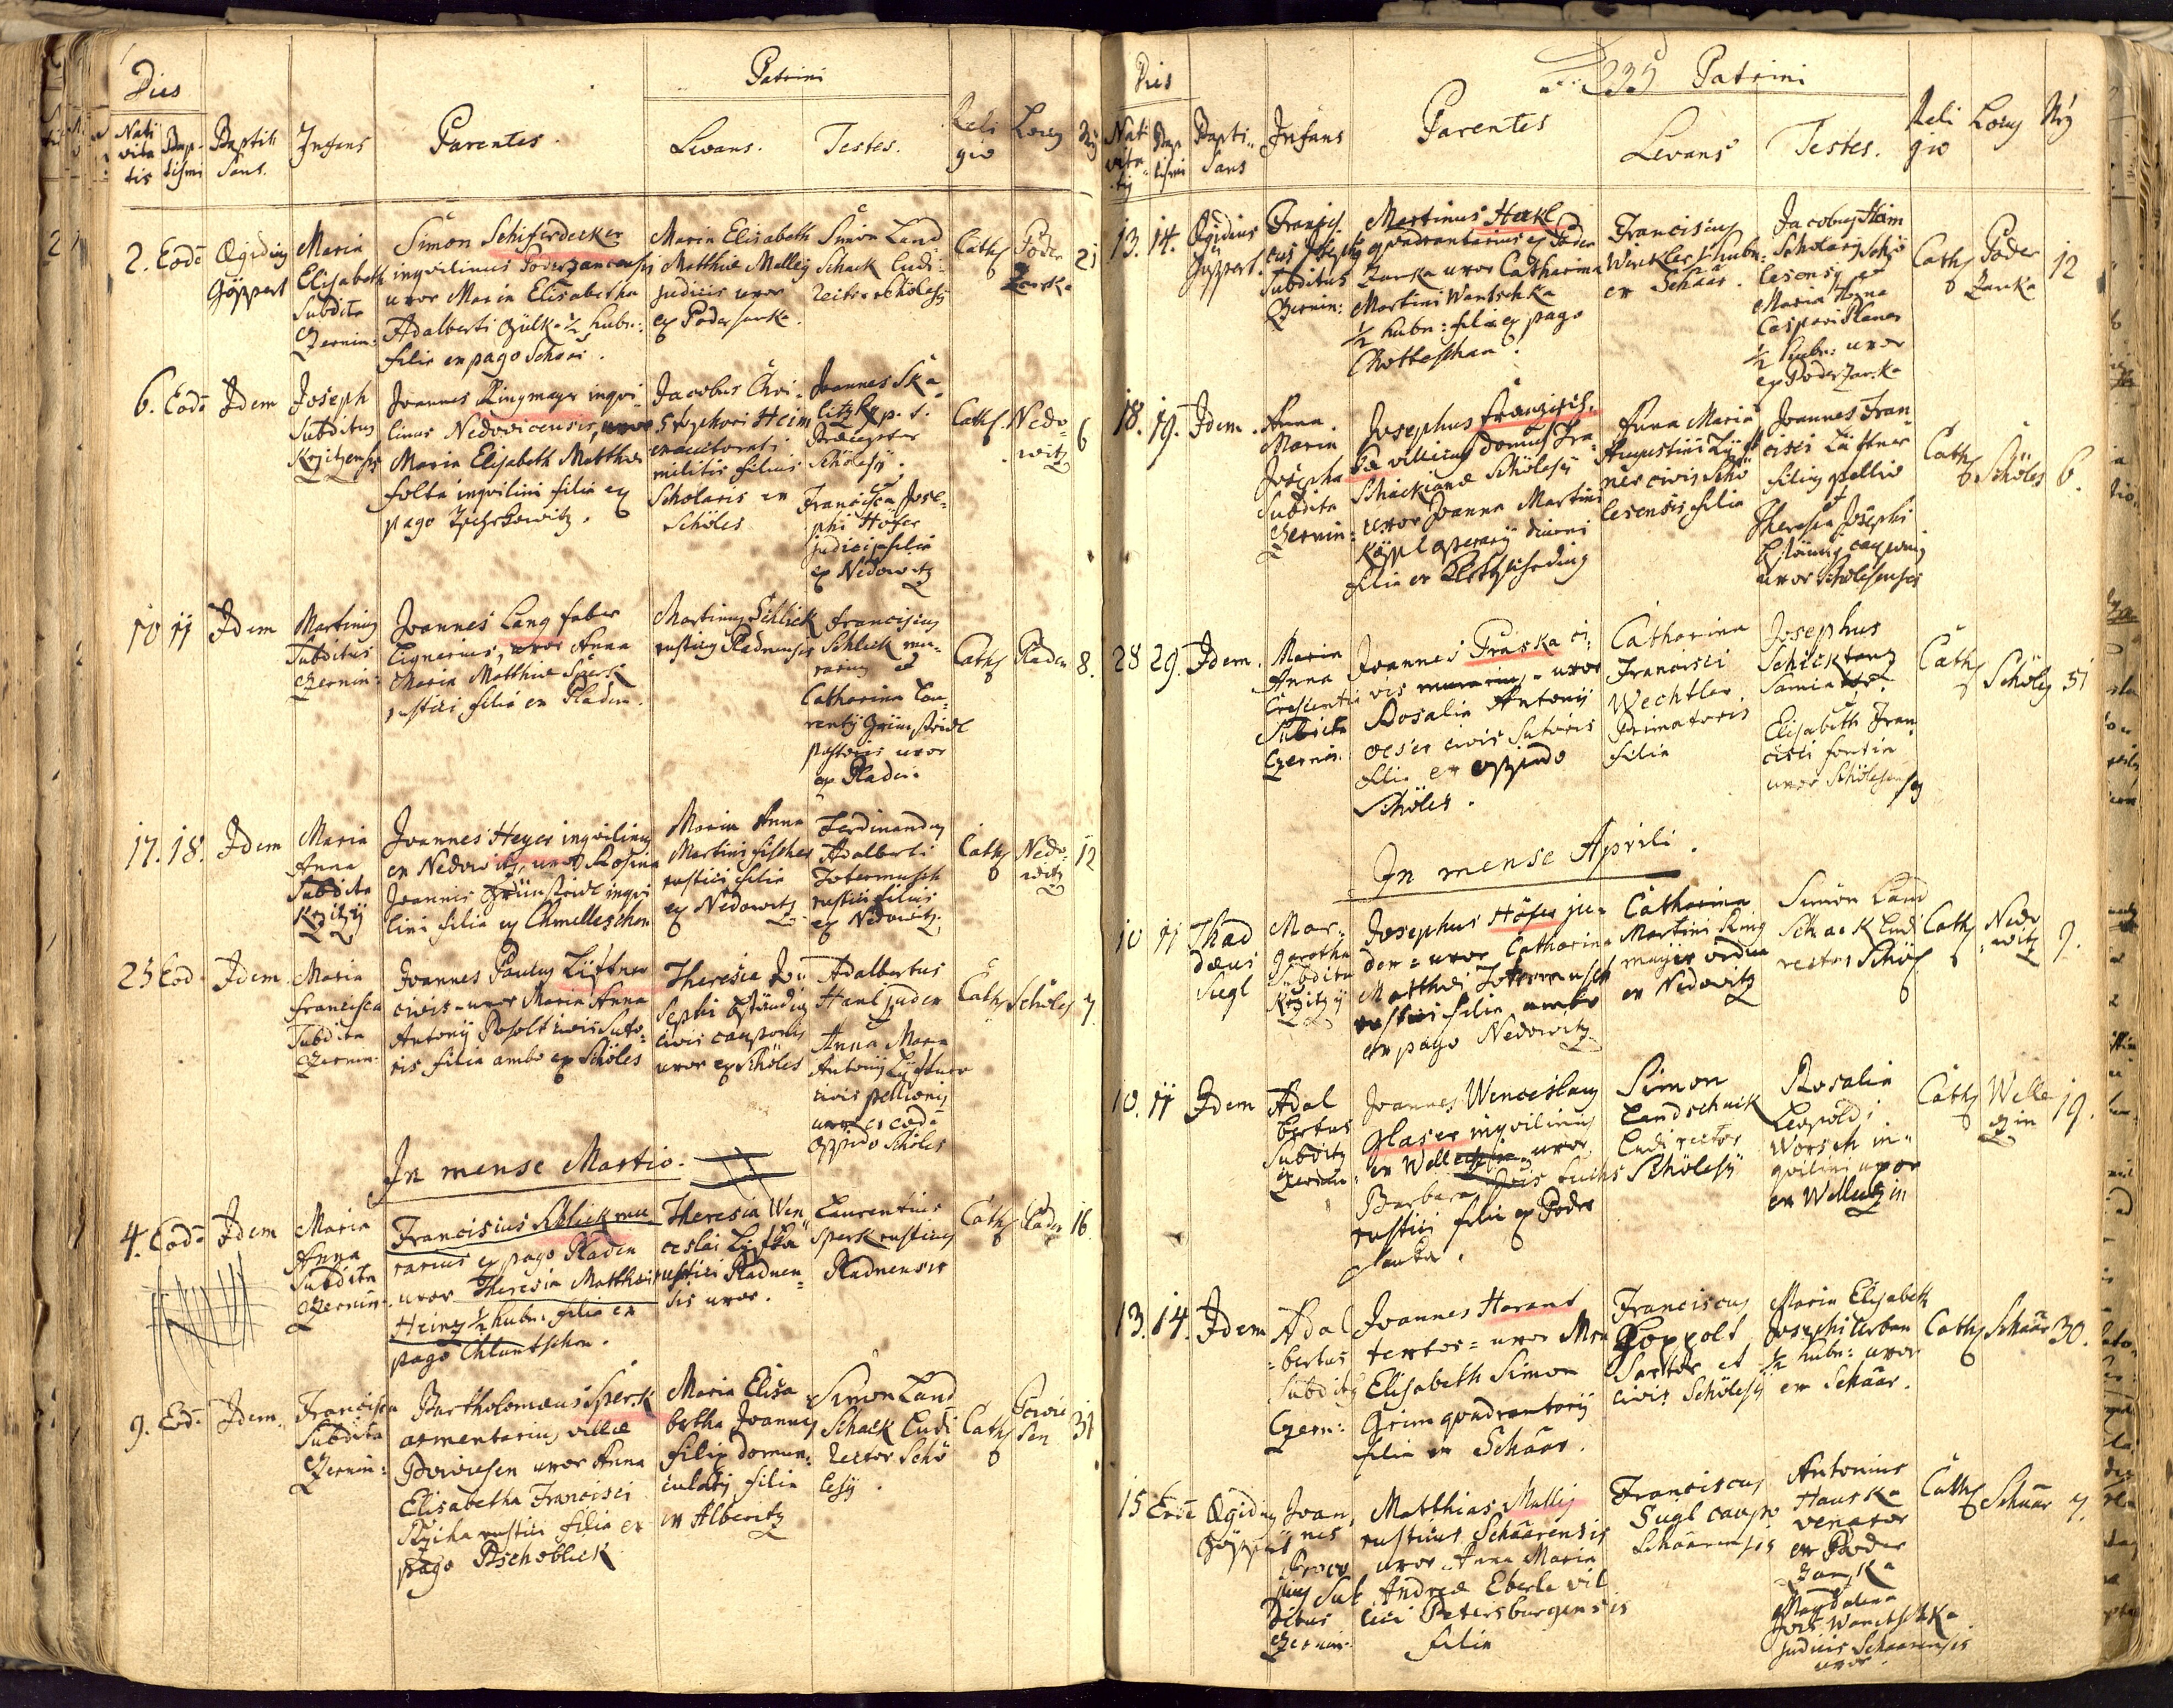 Dies
Nati
vita
tis
Bap-
tismi
Baptisans.
Infans
Parentes.
Patrini
Levans.
Testes.
Reli
gio
Locus
2. Eodē
Ægidius
Göppert
Maria
Elisabeth
Subdita
Czernin:
Simon Schiferdecker
inqvilinus Poderzancensis
uxor Maria Elisabetha
Adalberti Gülka ½ hubn:
filia ex pago Schaar.
Maria Elisabeth
Matthiæ Mallÿ
judicis uxor
ex Podersanka.
Simon Land
Schack Ludi-
rector Scholesÿ
Cath
Poder
Zanka
21
6. Eodē
Idem
Joseph
Subditus
Krzitzensis
Joannes Ringmayer inqvi-
linus Nedovicensis, uxor
Maria Elisabeth Matthiæ
folta inqvilini filia ex
pago
Jacobus Chri-
stophori Heim
exauctorati
militis filius
Scholaris ex
Schöles
Joannes Ska-
litzky p. t.
Præceptor
Schölesÿ.
et
Francisca Jose-
phi Höfer
judicis filia
ex Nedowitz
Cath.
Nedo-
witz
6
10 11
Idem
Martinus
Subditus
Czernin:
Joannes Lang faber
lignarius, uxor Anna
Maria Matthiæ Sperk
rustici filia ex Fladen.
Martinus Schlick
rusticus Fladnensis
Franciscus
Schlick mu-
rarius et
Catharina Lau-
rentÿ Grünstridl
pastoris uxor
ex Fladen.
Cath
Fladen
8.
17. 18.
Idem
Maria
Anna
Subdita
Krzitzÿ
Joannes Heyer inqvilinus
ex Nedowitz, uxor Rosina
Joannis Grünstridl inqvi
lini filia ex Chmelleschen
Maria Anna
Martini Fischer
rustici filia
ex Nedowitz
Ferdinandus
Adalberti
Totermusch
rustici filius
ex Nedowitz.
Cath
Nedo-
witz
12
25 Eod.
Idem
Maria
Francisca
Subdita
Czernin:
Joannes Paulus Lifftner
civis - uxor Maria Anna
Antonÿ Posolt civis Suto-
ris filia ambo ex Schöles
Theresia Jo-
sephi
civis cauponis
uxor ex Schöles
Adalbertus
Hanl juden
et
Anna Maria
Antonÿ Lifftner
civis pellionis
uxor ex eodē
oppido Schöles
Cath
Schöles
7.
In mense Martio.
4. Eodē
Idem
Maria
Anna
Subdita
Czernin:
Franciscus Schlick mu
rarius ex pago Fladen
uxor Theresia Matthæi
Heinz ½ hubn. filia ex
pago Chluntschen.
Theresia Wen
ceslai Lifka
rustici Fladnen-
sis uxor.
Laurentius
Sperk rusticus
Fladnensis
Cath
Fladen
16.
9. Eodē
Idem.
Francisca
Subdita
Czernin:
Bartholomæus Sperk
armentarius villæ
Powiesen uxor Anna
Elisabetha Francisci
rustici filia ex
pago Pschoblick
Maria Elisa
betha Joannis
Filip domun-
culatÿ filia
ex Alberitz
Simon Land
Schack Ludi
rector Schö
lesÿ.
Cath
Powie
sen
31
Dies
Nati
vita-
tis
Bap
tismi
Bapti-
sans
Infans
Parentes
235
Patrini
Levans
Testes.
Reli
gio
Locus
Nrus
13. 14.
Ægidius
Göppert.
Francis-
cus Josephus
Subditus
Czernin:
Martinus Hekl
qvadrantarius ex Poder
Zanka uxor Catharina
Martini Wantschka
½ hubn: filia ex pago
Chotteschau.
Franciscus
Winkler ½ hubn:
ex Schaar.
Jacobus Heim
Scholaris Schö
lesensis et
Maria Anna
Caspari Planer
½ hubn: uxor
ex Poder Zanka
Cath
Poder
Zanka
12
18. 19.
Idem.
Anna
Maria
Josepha
Subdita
Czernin:
Josephus Franzisch-
ka villicus Domus Fra-
Schackianæ Schölesÿ
uxor Joanna Martini
Köppl operarÿ diurni
filia ex
Anna Maria
Augustini Lifft
ner civis Schö
lesensis filia
Joannes Fran-
cisci Lifftner
filius pellio
et
Theresia Josephi
cauponis
uxor Scholesensis
Cath
Schöles
6.
28 29.
Idem.
Maria
Anna
Crescentia
Subdita
Czernin.
Joannes Praska ci-
vis murarius, uxor
Rosalia Antonÿ
Oeser civis Sutoris
filia ex oppido
Schöles.
Catharina
Francisci
Wechtler
Primatoris
filia
Josephus
Schicktanz
Lamiator.
et
Elisabeth Fran
cisci Fortin
uxor Schölesensis
Cath
Schöles
51
In mense Aprili.
10 11
Thad
dæus
Siegl
Mar-
garetha
Subdita
Krzitzÿ
Josephus Höfer ju-
dex - uxor Catharina
Matthæi Totermusch
rustici filia ambo
ex pago Nedowitz
Catharina
Martini Ring
mayer vidua
ex Nedowitz
Simon Land
Schack Ludi
rector Schöl
Cath
Nedo
witz
9.
10. 11
Idem
Adal
bertus
Subditus
Czernin:
Joannes Wenceslaus
Glaser inqvilinus
ex Welletzin uxor
Barbara Jois Fuchs
rustici filia ex Poder
sanka.
Simon
Landschack
Ludirector
Schölesÿ
Rosalia
Leopoldi
Worsch in-
qvilini uxor
ex Welletzin
Cath
Welle
tzin
19.
13. 14.
Idem
Adal
bertus
Subditus
Czern:
Joannes Harant
textor - uxor Mra
Elisabeth Simon
Grim qvadrantarÿ
filia ex Schaar.
Franciscus
Goppolt
Sartor et
civis Schölesÿ
Maria Elisabeth
Josephi Urban
½ hubn: uxor
ex Schaar.
Cath
Schaar
30.
15 Eodē
Ægidius
Göppert
Joan-
nes
Proco
pius Sub
ditus
Czernin:
Matthias Mallÿ
rusticus Schaarensis
uxor Anna Maria
Andreæ Eberle vil
lici Petersburgensis
filia
Franciscus
Sugl caupo
Schaarensis
Antonius
Hauska
venator
ex Poder
Zanka
et
Magdalena
Jois Wantschka
judicis Schaarensis
uxor.
Cath
Schaar
7.